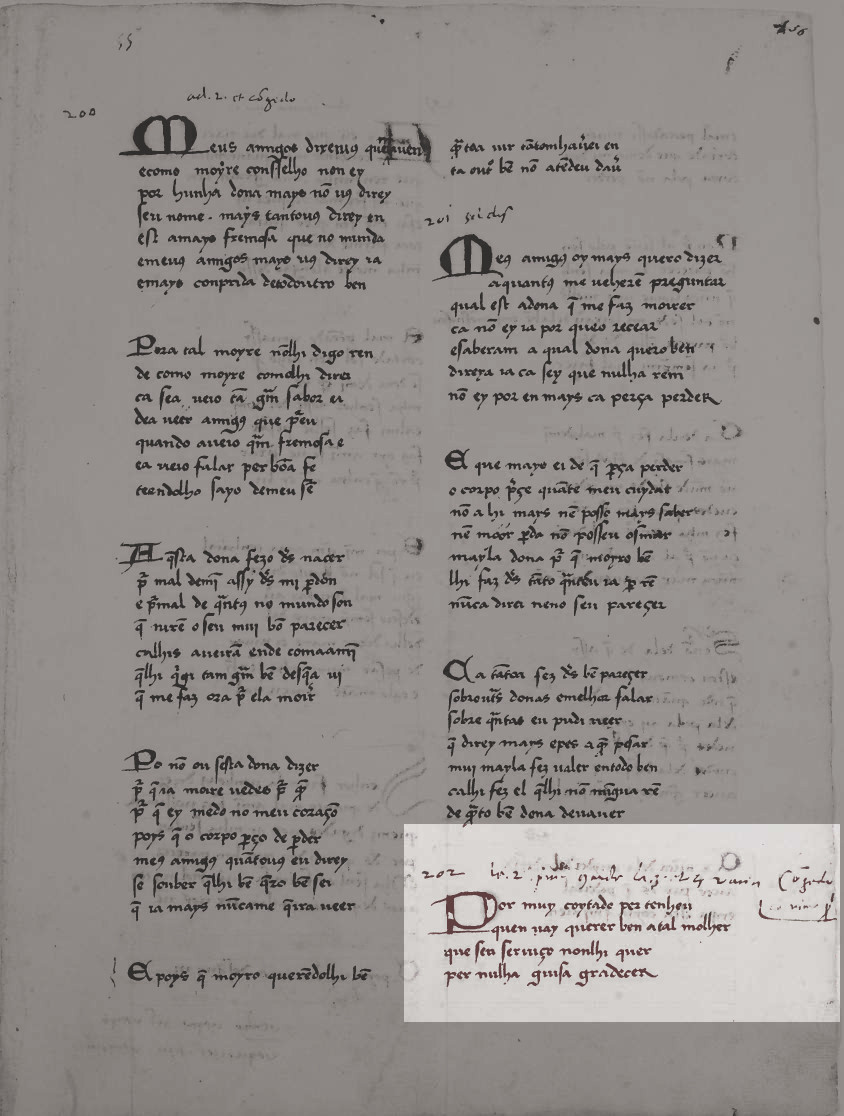 200
Meus amigos direivus que
ecomo moyre conselho non ey
por hunha dona mays nõ vus direy
seu nome. mays tantovus direy en
est amays fremosa que no mundo
emeus amigos mays vus direy ia
emays conprida detodoutro ben
Pera tal moyre nõlhi digo ren
de como moyre comolhi direi
ca sea veio tã gr̃m sabor ei
dea veer amigus que p̃eu
quando aveio qm̃ fremosa e
ea veio falar per bõa fe
teendolho sayo demeu sẽ
Aq̃sta dona fezo d̃s nacer
p̃ mal demj̃ assy d̃s mi p̃don
e p̃ mal de q̃ntus no mundo son
q̃ virẽ o seu mui bõ parecer
calhis averrã ende comaamj̃
q̃ me faz ora p̃ ela moir̃
Po nõ ou sesta dona dizer
p̃ q̃ ia moire vedes p̃ q̃
p̃ q̃ ey medo no meu coraçõ
poys q̃ o corpo p̃ço de p̃der
meus amigus quantovus eu direy
se souber q̃lhi bẽ q̃ro bẽ sei
q̃ ia mays nũcame q̃ira veer
E poys q̃ moyro querẽdolhi bẽ
201
Meus amigus oy mays quero dizer
aquantus me veherẽ preguntar
qual est adona q̃ me faz moirer
ca nõ ey ia por queo recear
esaberam a qual dona quero ben
direya ia ca sey que nulha rem
nõ ey por en mays ca perça perder
E que mays ei de q̃ p̃ça perder
o corpo p̃çe quãte meu cuydar
nõ a hi mays nẽ posso mays saber
nẽ moor p̃da nõ posseu osmar
mayla dona p̃ q̃ moyro bẽ
lhi faz d̃s tãto q̃nteu ia p̃ rẽ
nũca direi neno seu pareçer
Ca tãtoi fez d̃s bẽ pareçer
sobrovt̃s donas emelhor falar
sobre q̃ntas eu pudi veer
q̃ direy mays epes aq̃ pesar
mui mayla fez valer entodo ben
calhi fez el q̃lhi nõ mĩgua rẽ
de q̃to bẽ dona devaver
202
Por muy coytado per tenheu
quen vay querer ben atal molher
que seu serviço nonlhi quer
per nulha guisa gradecer